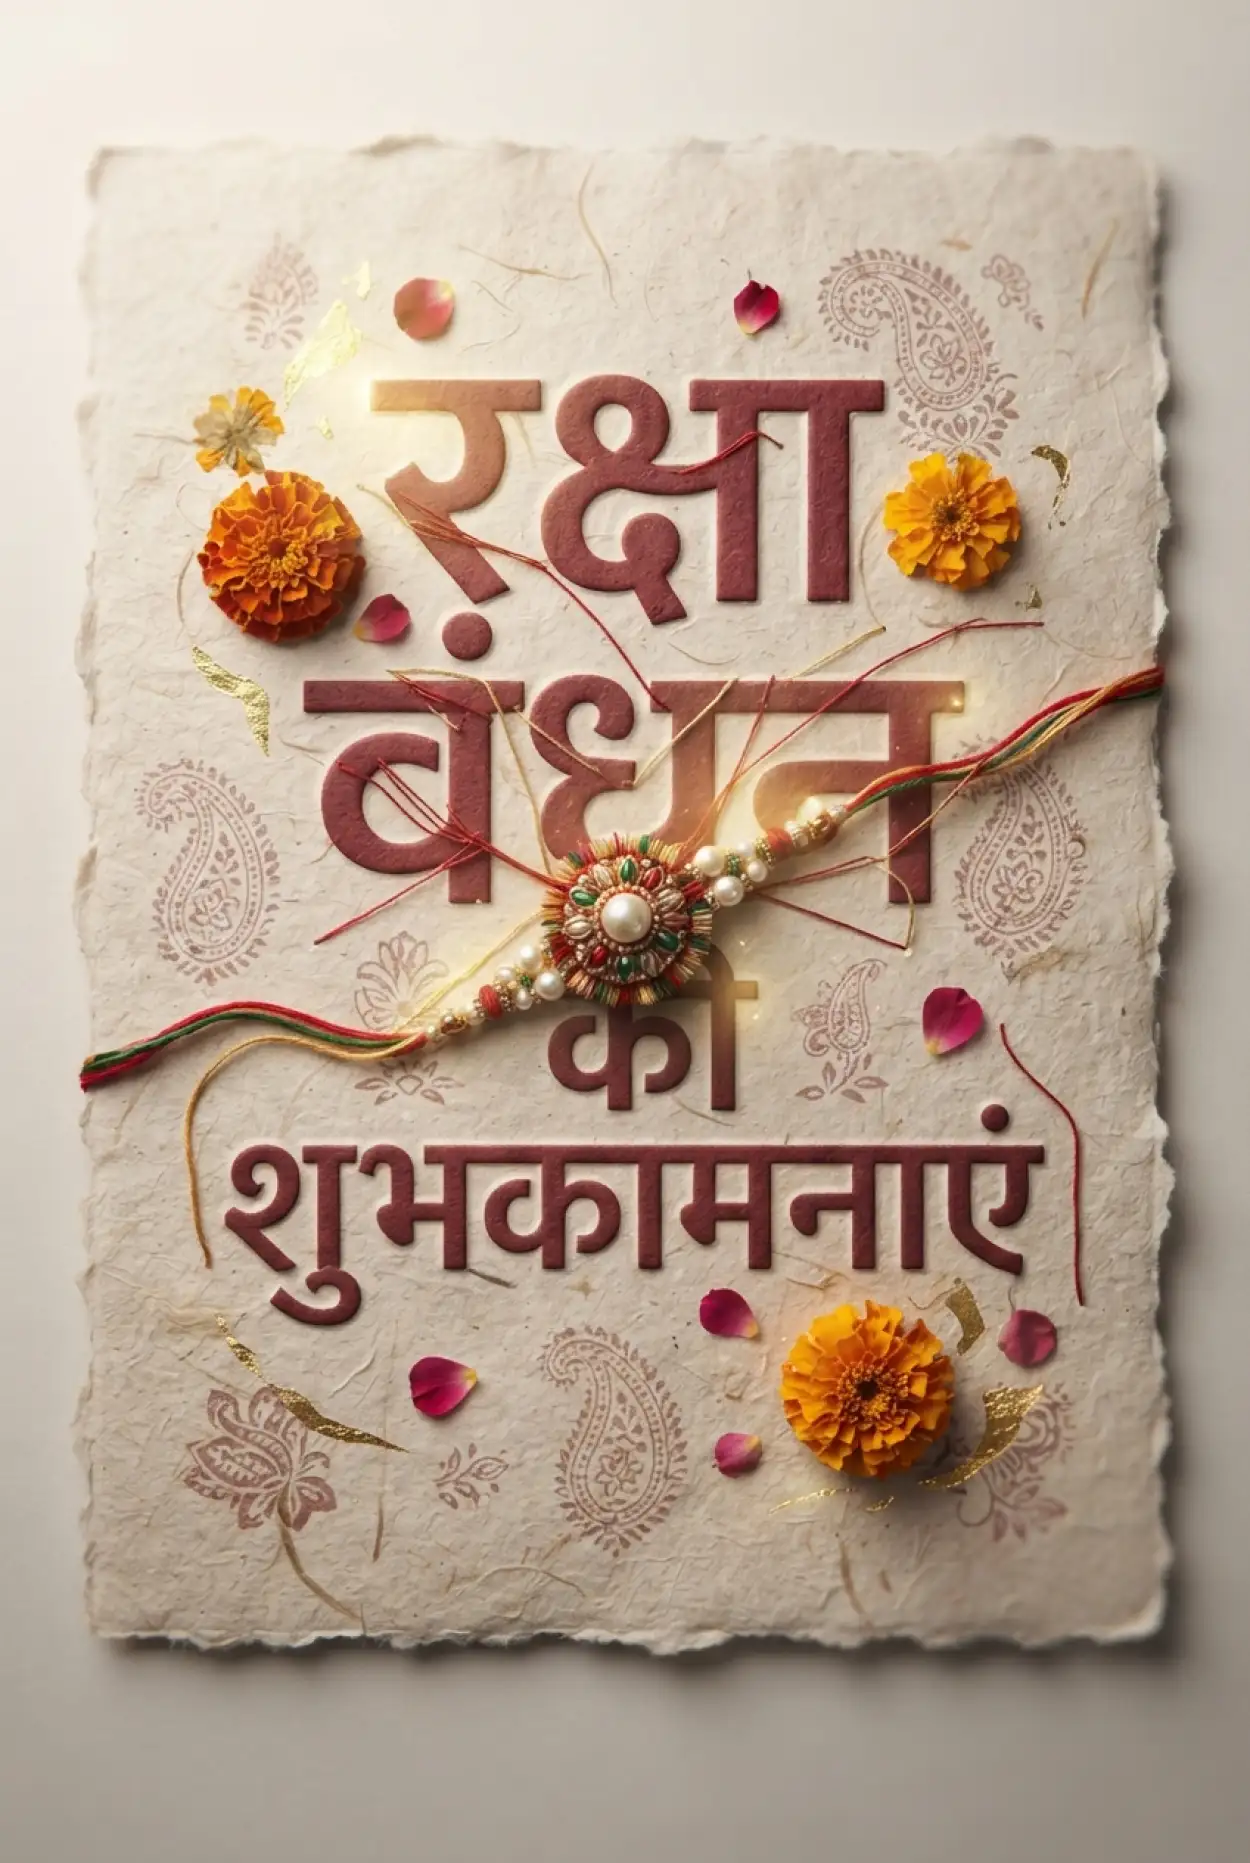 रक्षा
बंधन
की
शुभकामनाएं